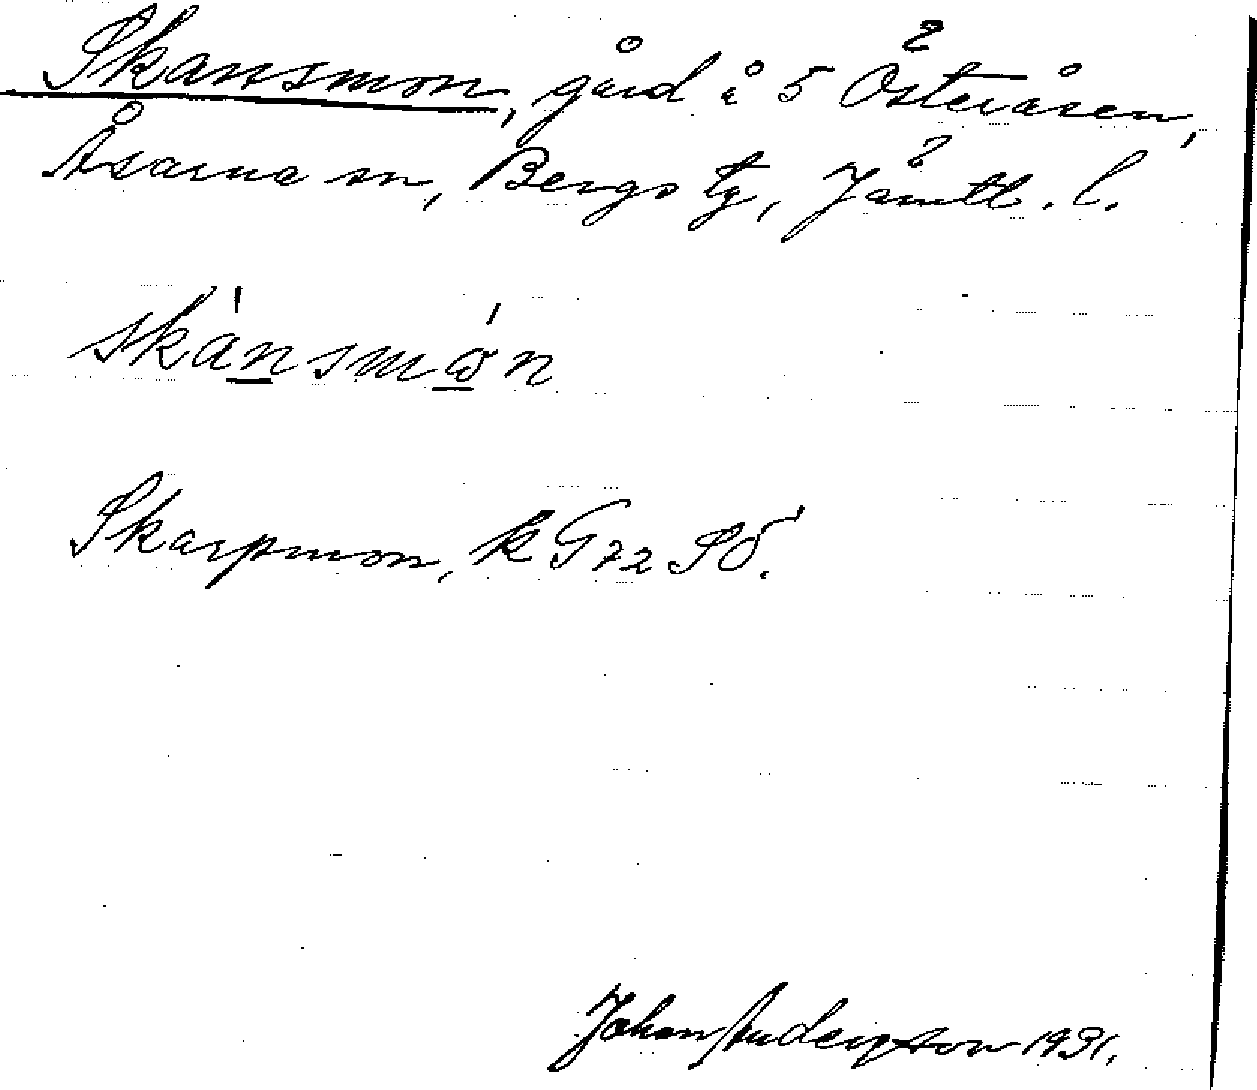 Skansmon, gård å 5 Österåsen,
Åsarna sn, Bergs tg, Jämtl. l.
skánsmón
Skarpmon, k G 72 SÖ.
Johan Anderzson 1931.